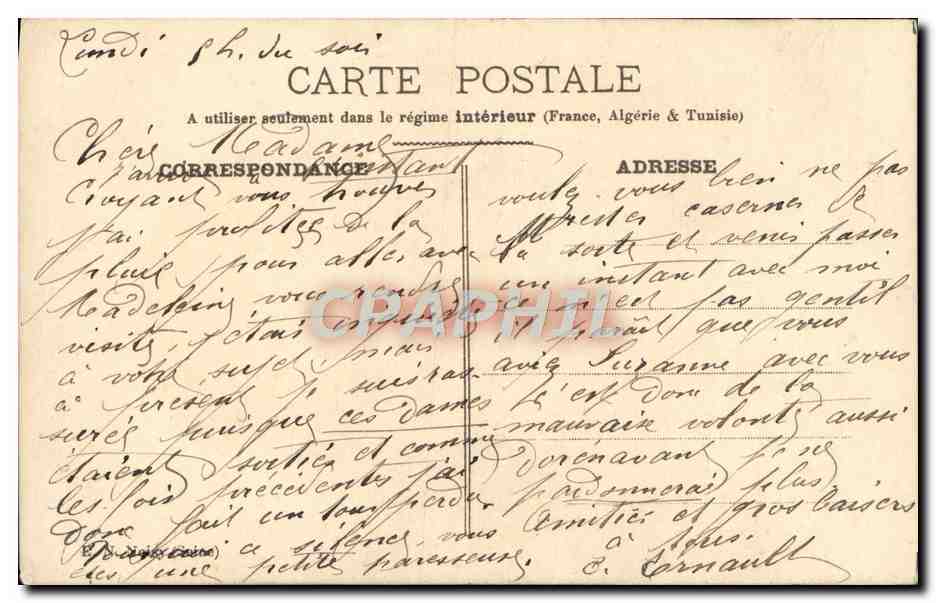 Lundi 5h. du soir
CARTE POSTALE
A utiliser seulement dans le régime intérieur (France, Algérie & Tunisie)
Chère Madame
CORRESPONDANCE
ADRESSE
à l'instant
Croyant vous trouver
j'ai profité de la
pluie pour aller avec
Madeleine vous rendre
visite j'étais inquiète
à votre sujet, mais
à présent je suis ras-
surée puisque ces dames
étaient sorties et comme
les fois précédentes j'ai
donc fait un tour perdu
Pourquoi ce silence, vous
êtes une petite paresseuse.
E. N. Noisy (Seine)
voulez-vous bien ne pas
rester casernée de
la sorte et venir passer
un instant avec moi
ce n'est pas gentil
il paraît que vous
aviez Suzanne avec vous
c'est donc de la
mauvaise volonté aussi
dorénavant je ne
pardonnerai plus.
Amitiés et gros baisers
à tous.
C. Ernault
CPAPHIL